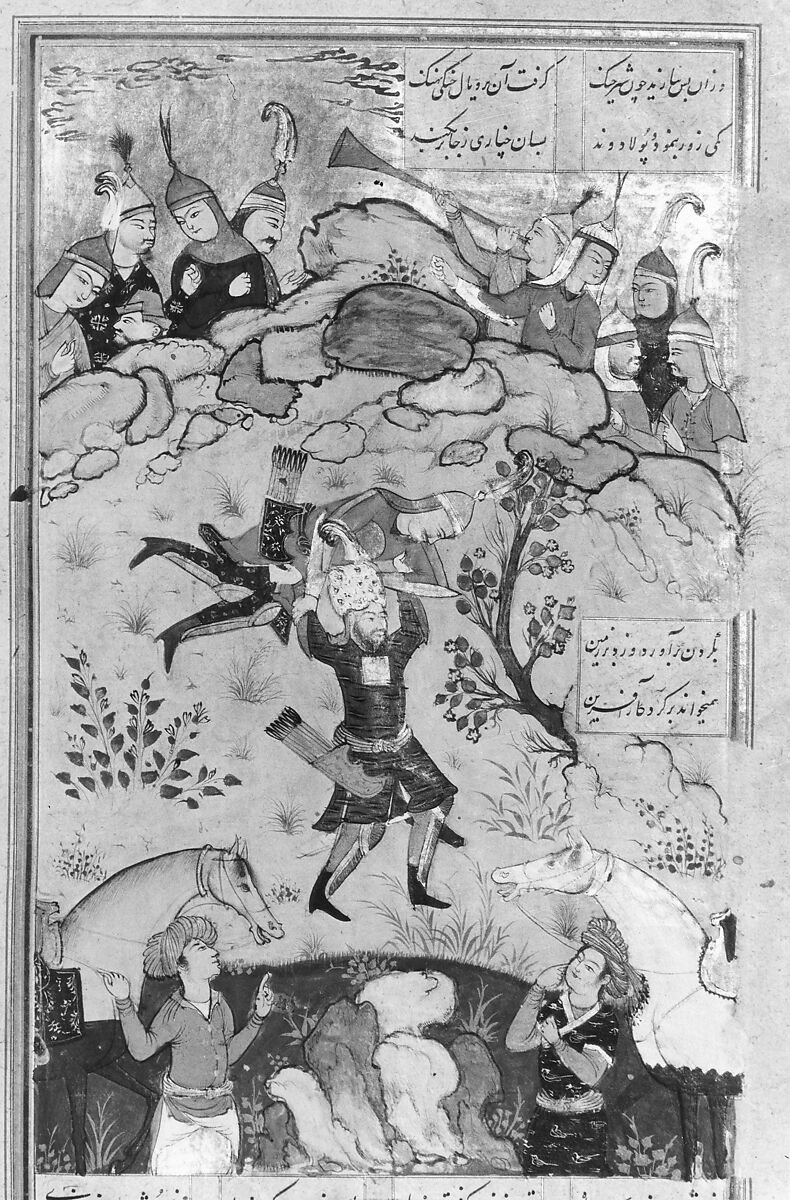 وزان پس بیازید چون شیر چنگ گرفت آن بر و یال جنگی نهنگ
کمی زور بنمود پولادوند بسان چناری ز جا برکند
بگردن برآورد و زد بر زمین
همیخواند بر کردگار آفرین